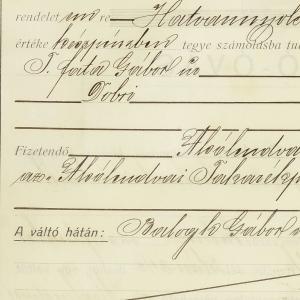 rendelet en re Hatvannyolc
értéke készpénzben tegye számolásba
T. fata Gábor úr
Dobri
Fizetendő Alsólendva
az Alsólendvai Takarékp
A váltó hátán: Balogh Gábor